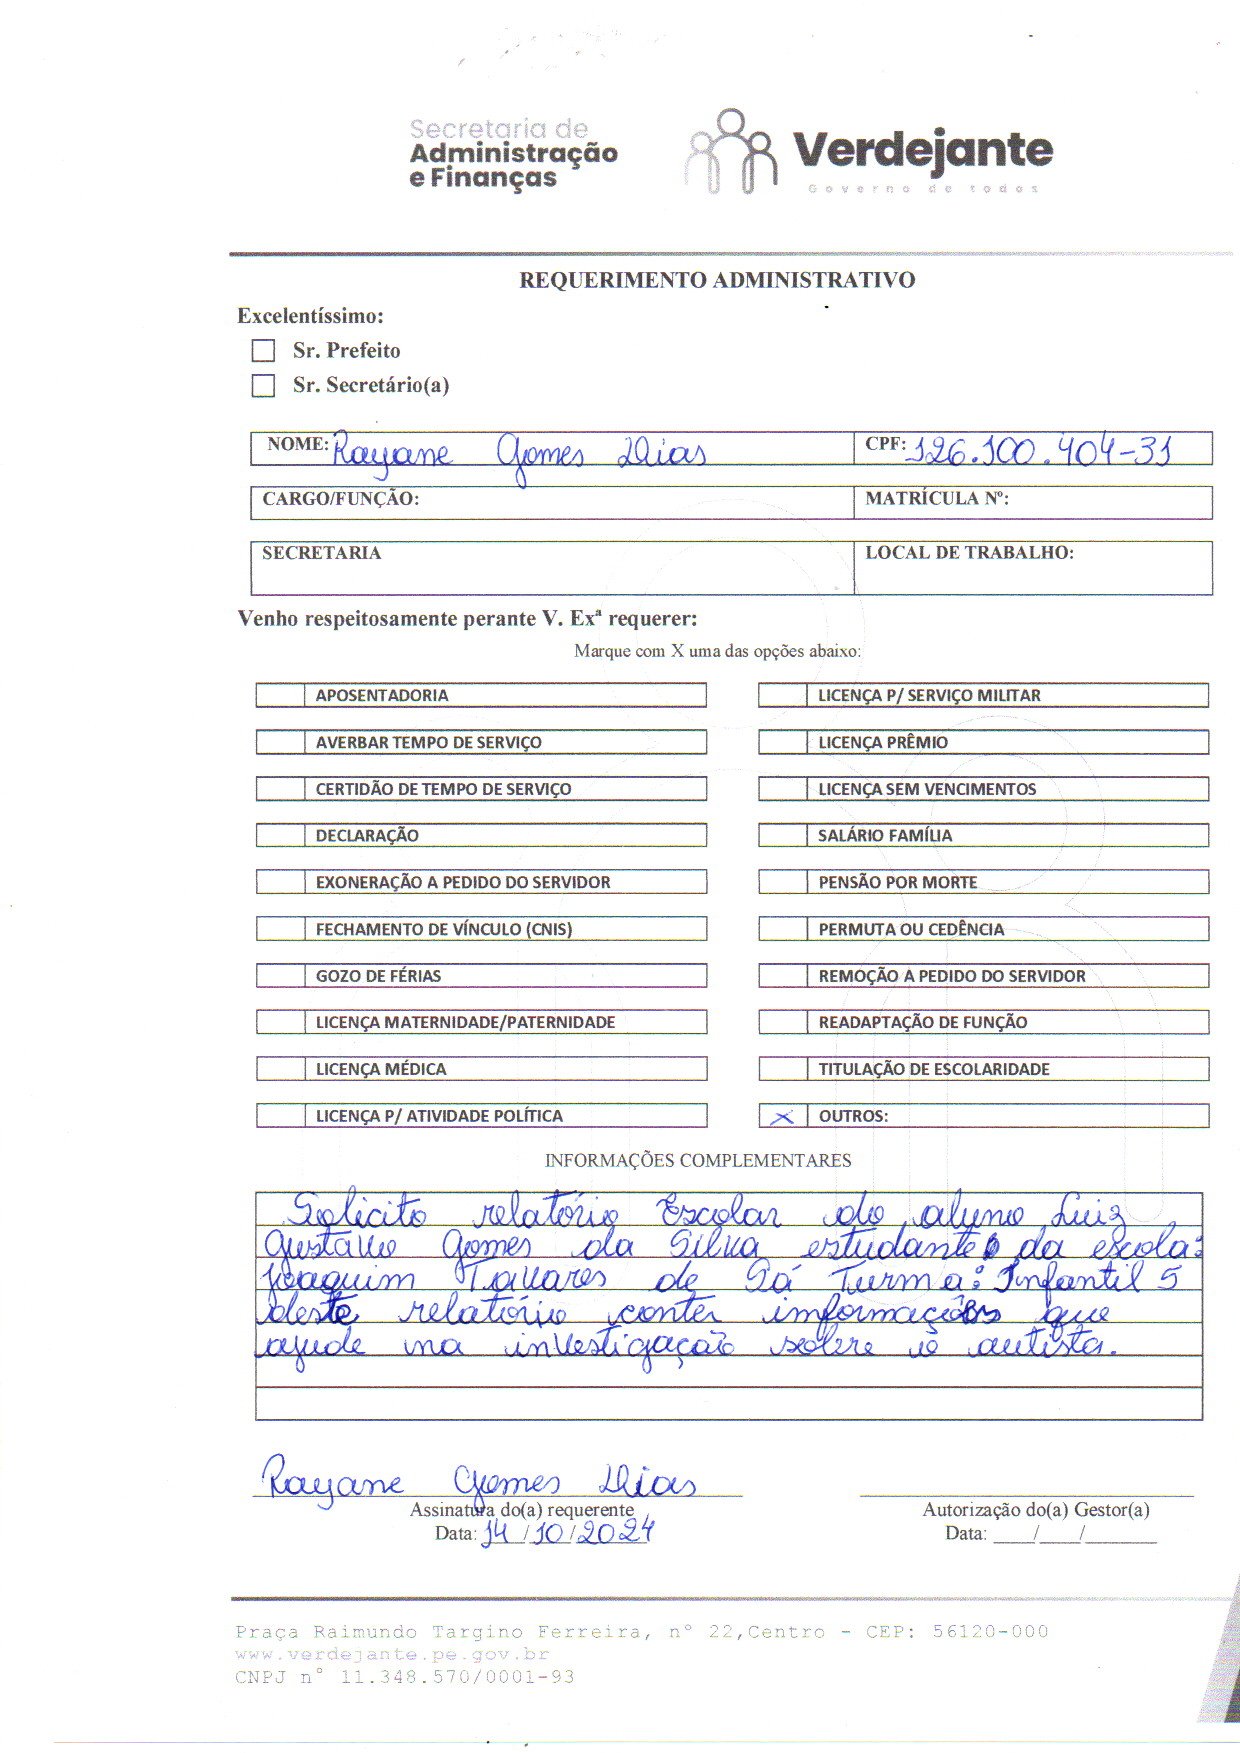 Secretaria de
Administração
e Finanças
Verdejante
Governo de todos
REQUERIMENTO ADMINISTRATIVO
Excelentíssimo:
Sr. Prefeito
Sr. Secretário(a)
NOME: Rayane Gomes Dias CPF: 126.100.404-31
CARGO/FUNÇÃO: MATRÍCULA Nº:
SECRETARIA LOCAL DE TRABALHO:
Venho respeitosamente perante V. Exª requerer:
Marque com X uma das opções abaixo:
APOSENTADORIA LICENÇA P/ SERVIÇO MILITAR
AVERBAR TEMPO DE SERVIÇO LICENÇA PRÊMIO
CERTIDÃO DE TEMPO DE SERVIÇO LICENÇA SEM VENCIMENTOS
DECLARAÇÃO SALÁRIO FAMÍLIA
EXONERAÇÃO A PEDIDO DO SERVIDOR PENSÃO POR MORTE
FECHAMENTO DE VÍNCULO (CNIS) PERMUTA OU CEDÊNCIA
GOZO DE FÉRIAS REMOÇÃO A PEDIDO DO SERVIDOR
LICENÇA MATERNIDADE/PATERNIDADE READAPTAÇÃO DE FUNÇÃO
LICENÇA MÉDICA TITULAÇÃO DE ESCOLARIDADE
LICENÇA P/ ATIVIDADE POLÍTICA X OUTROS:
INFORMAÇÕES COMPLEMENTARES
Solicito relatório Escolar do aluno Luiz
Gustavo Gomes da Silva estudante da escola:
Joaquim Tavares de Sá Turma: Infantil 5
deste relatório conter informações que
ajude na investigação sobre o autista.
Rayane Gomes Dias
Assinatura do(a) requerente Autorização do(a) Gestor(a)
Data: 14/10/2024 Data: ____/____/_______
Praça Raimundo Targino Ferreira, n° 22,Centro - CEP: 56120-000
www.verdejante.pe.gov.br
CNPJ n° 11.348.570/0001-93